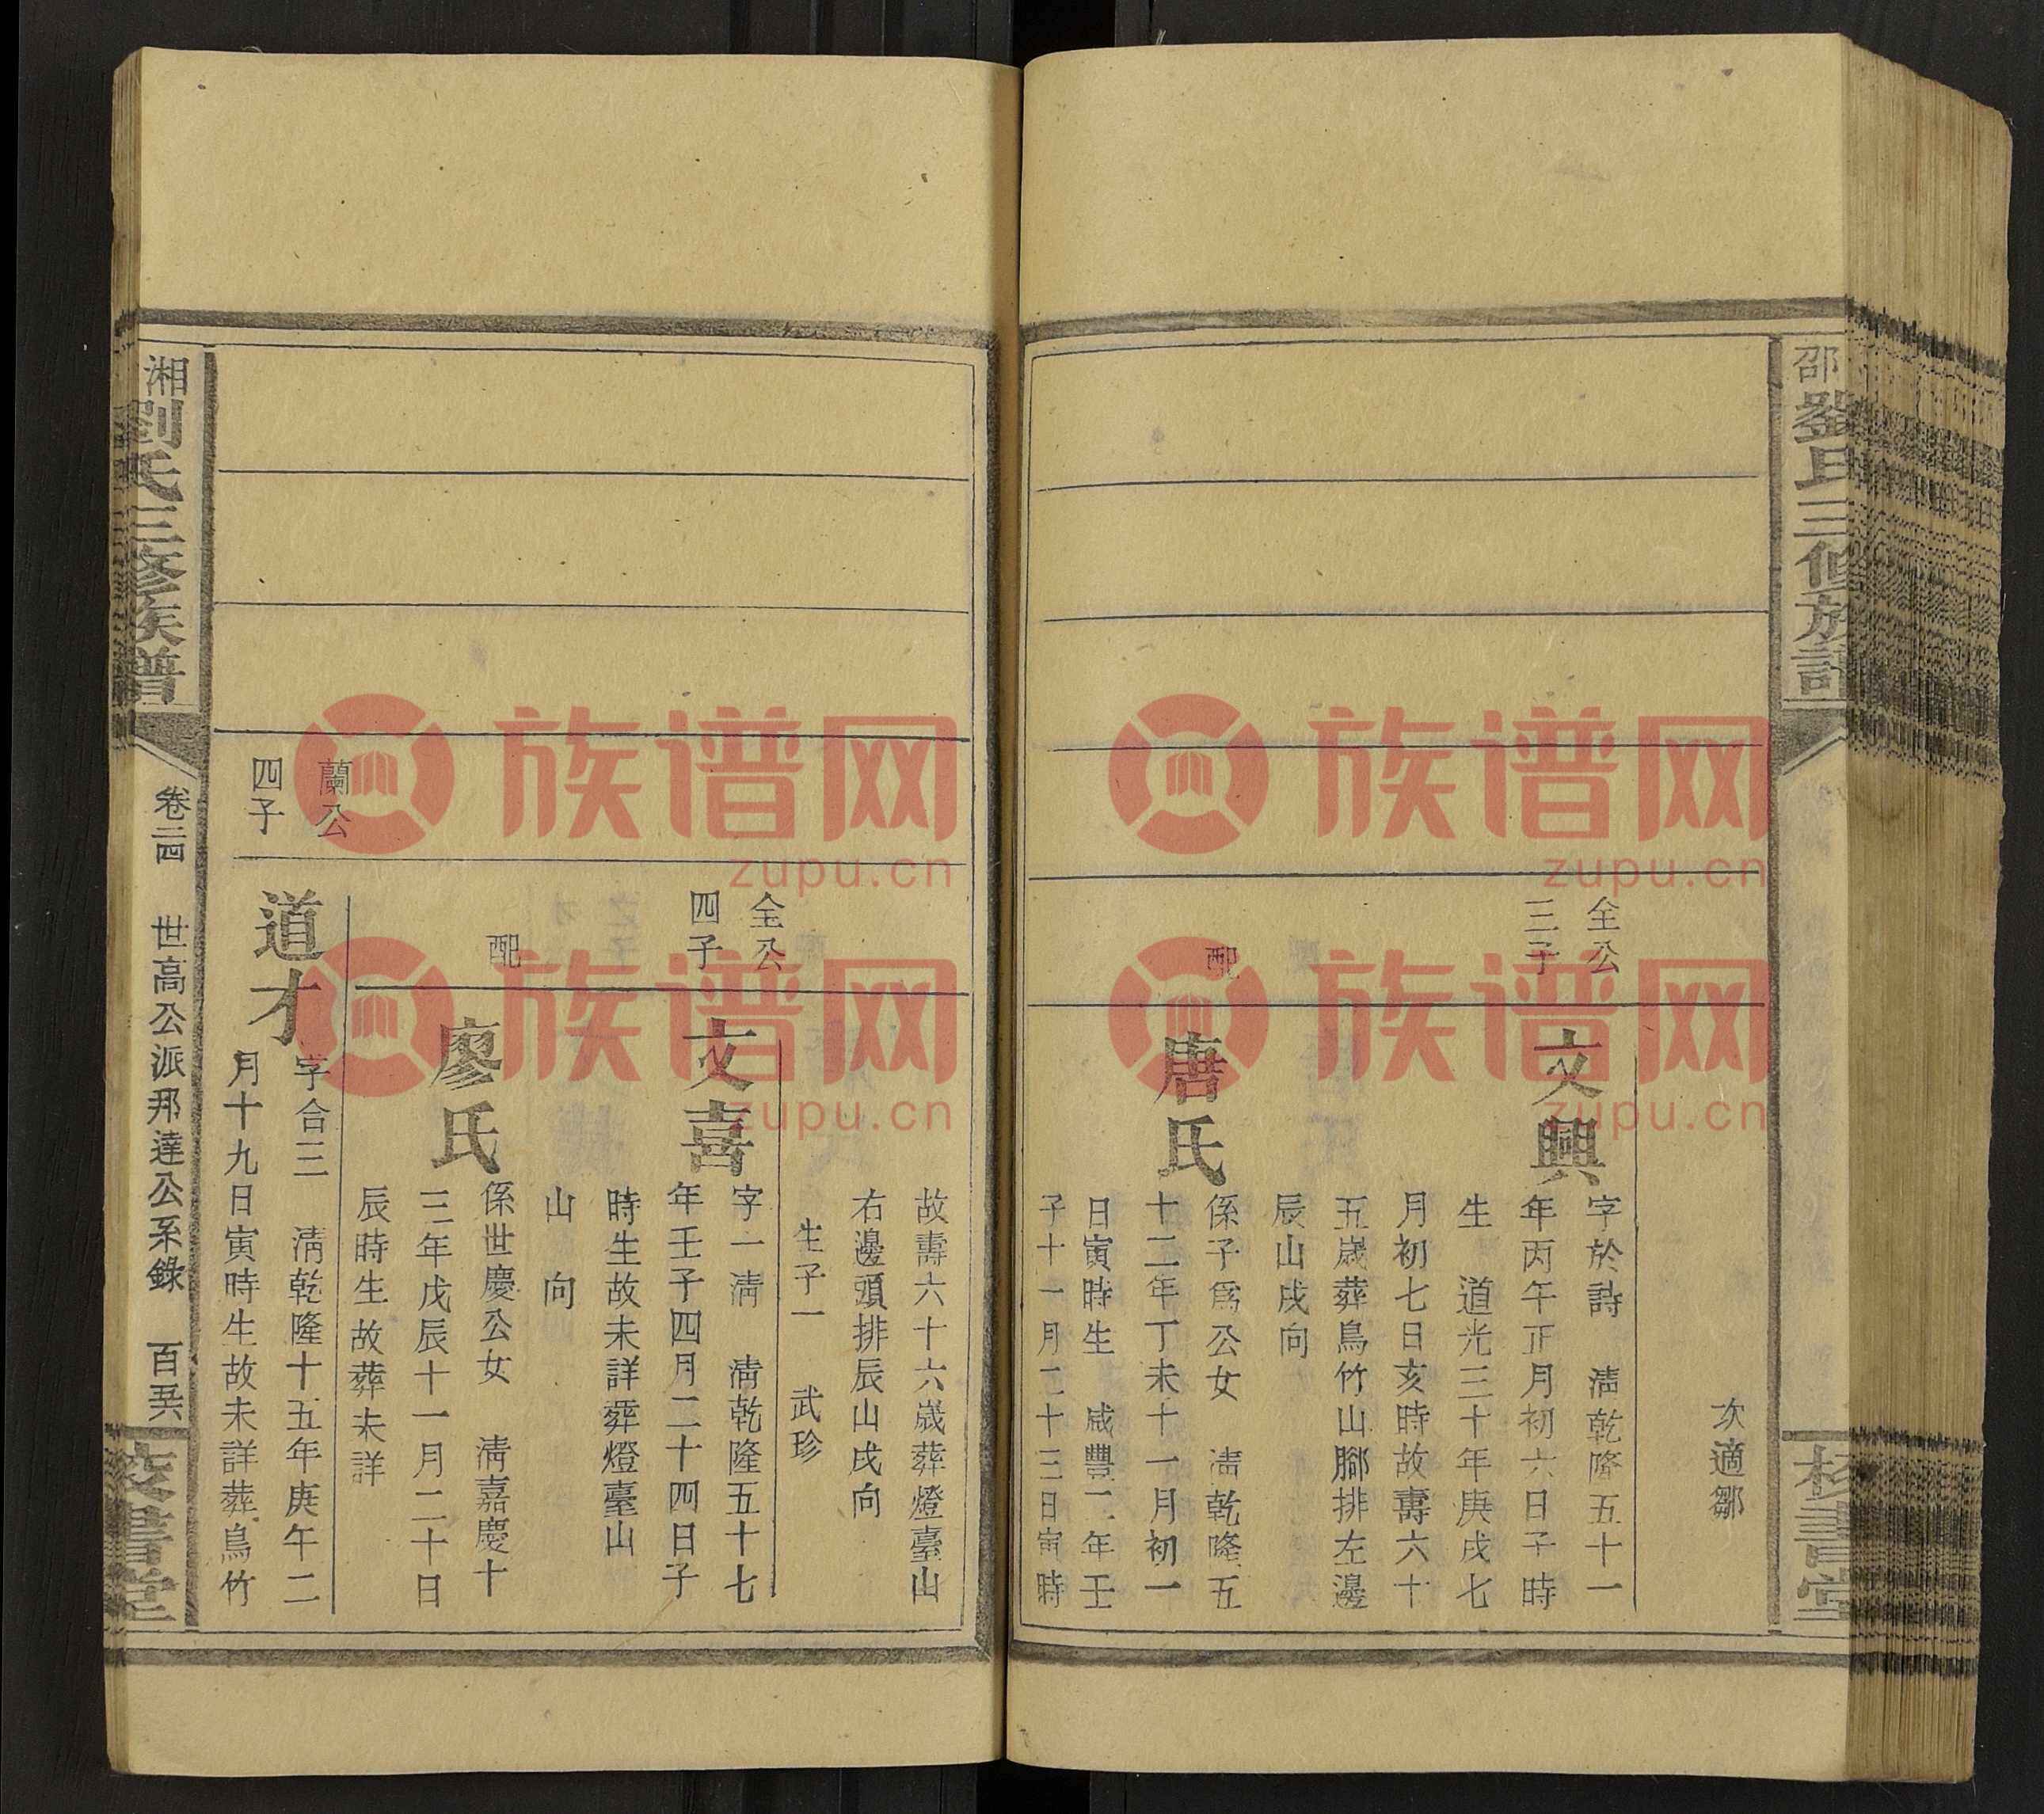 邵
劉氏三修族譜
校書堂
次適鄒
全公
三子
文興
字於詩　清乾隆五十一
年丙午正月初六日子時
生　道光三十年庚戌七
月初七日亥時故壽六十
五歲葬鳥竹山腳排左邊
辰山戌向
配
唐氏
係子爲公女　清乾隆五
十二年丁未十一月初一
日寅時生　咸豐二年壬
子十一月二十三日寅時
故壽六十六歲葬燈臺山
右邊頭排辰山戌向
生子一　武珍
全公
四子
文喜
字一清　清乾隆五十七
年壬子四月二十四日子
時生故未詳葬燈臺山
山　向
配
廖氏
係世慶公女　清嘉慶十
三年戊辰十一月二十日
辰時生故葬未詳
蘭公
四子
道才
字合三　清乾隆十五年庚午二
月十九日寅時生故未詳葬鳥竹
湘
劉氏三修族譜
卷二四　世高公派邦達公系錄　百
校書堂
族谱网
zupu.cn
族谱网
zupu.cn
族谱网
zupu.cn
族谱网
zupu.cn